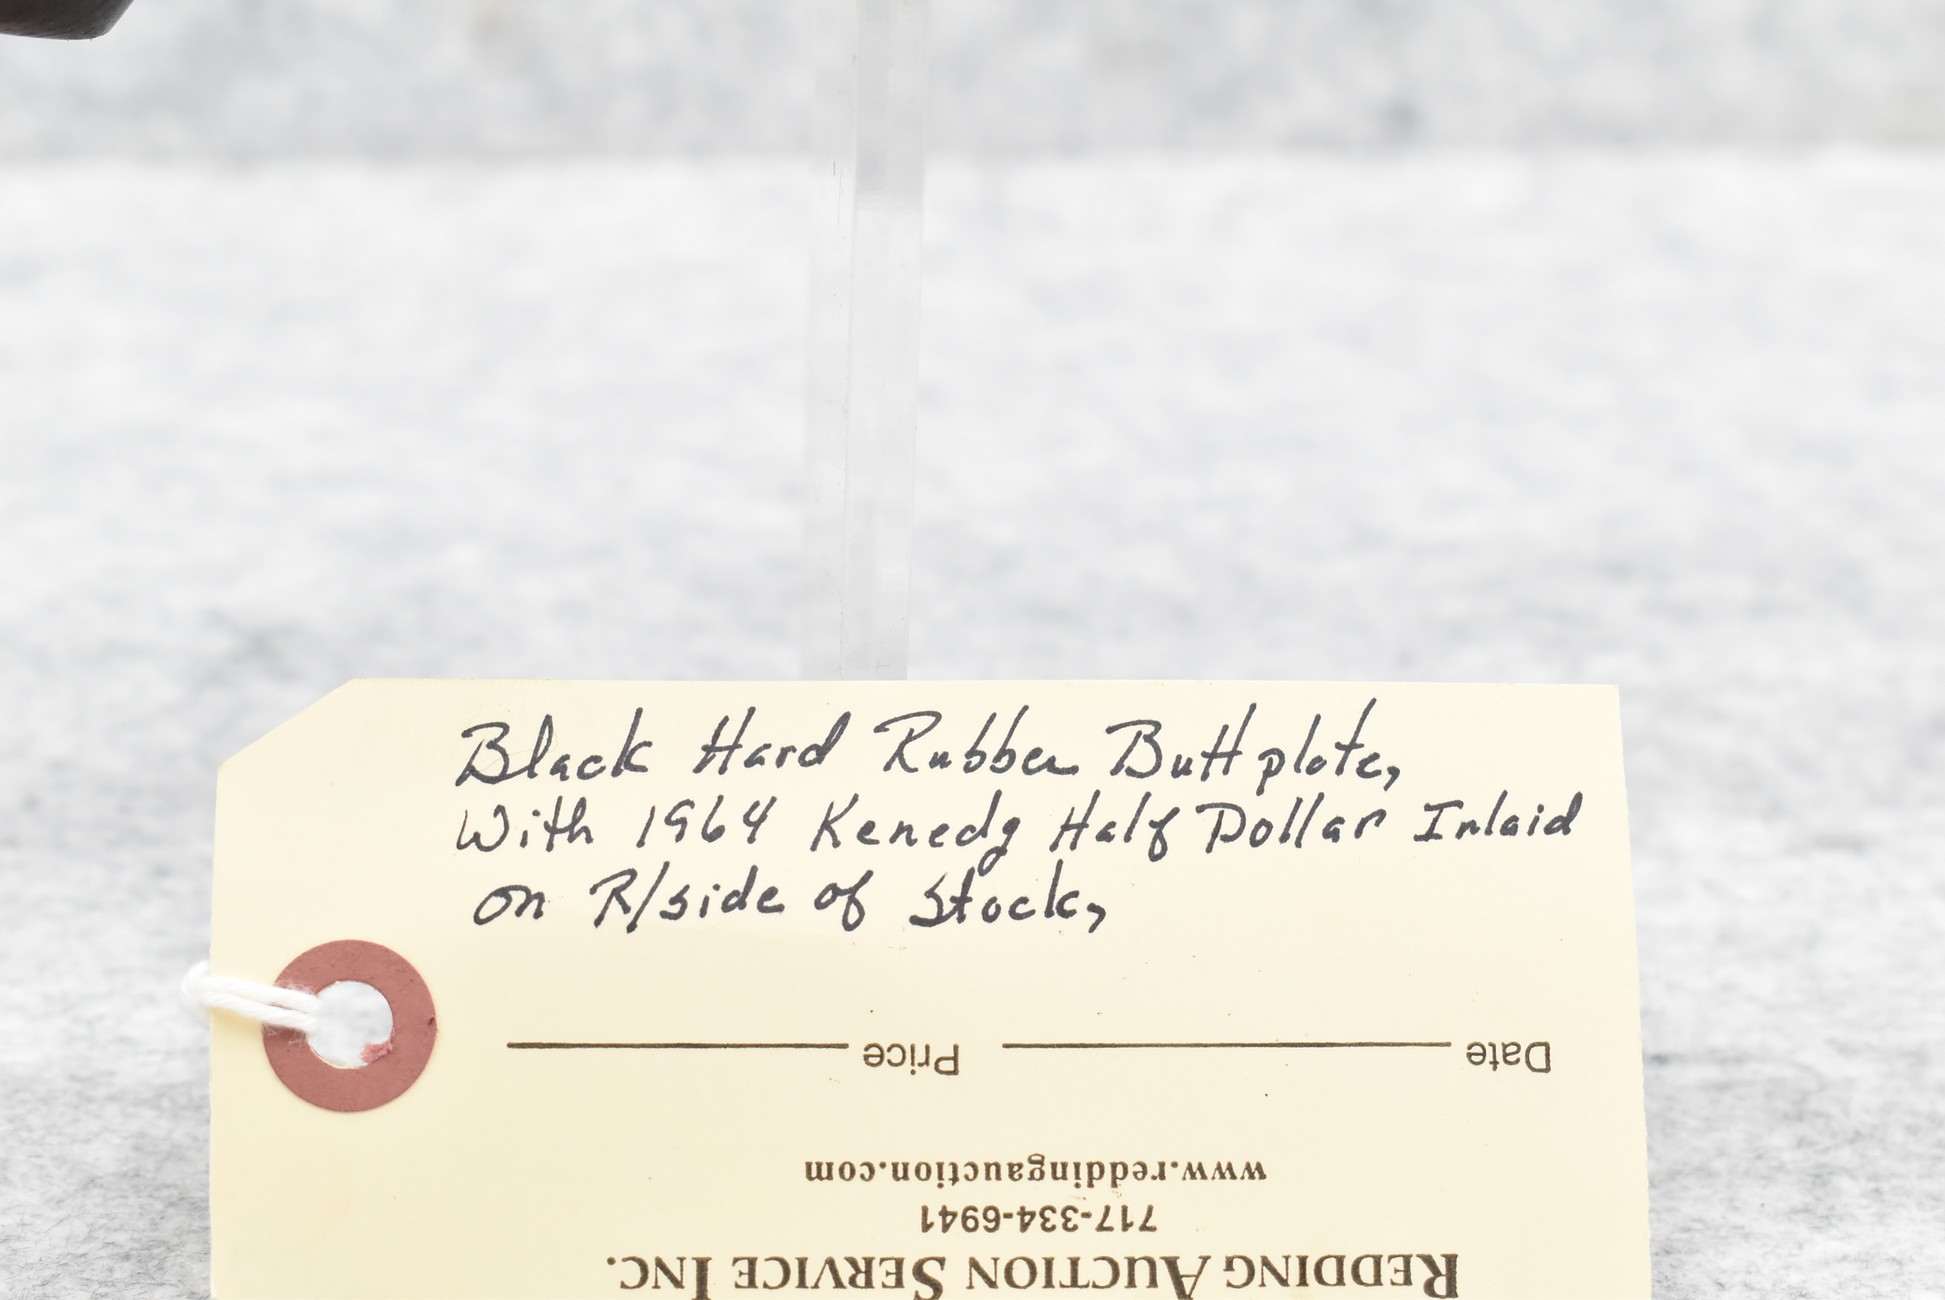 Black Hard Rubber Buttplate,
With 1964 Kenedy Half Dollar Inlaid
on R/side of Stock,
Date Price
www.reddingauction.com
717-334-6941
REDDING AUCTION SERVICE INC.